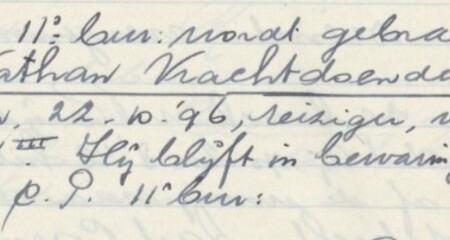 11e bur: wordt gebra
athan Vrachtdoenda
, 22.10.'96, reiziger,
III. Hij blijft in bewarin
C.P. 11e bur: